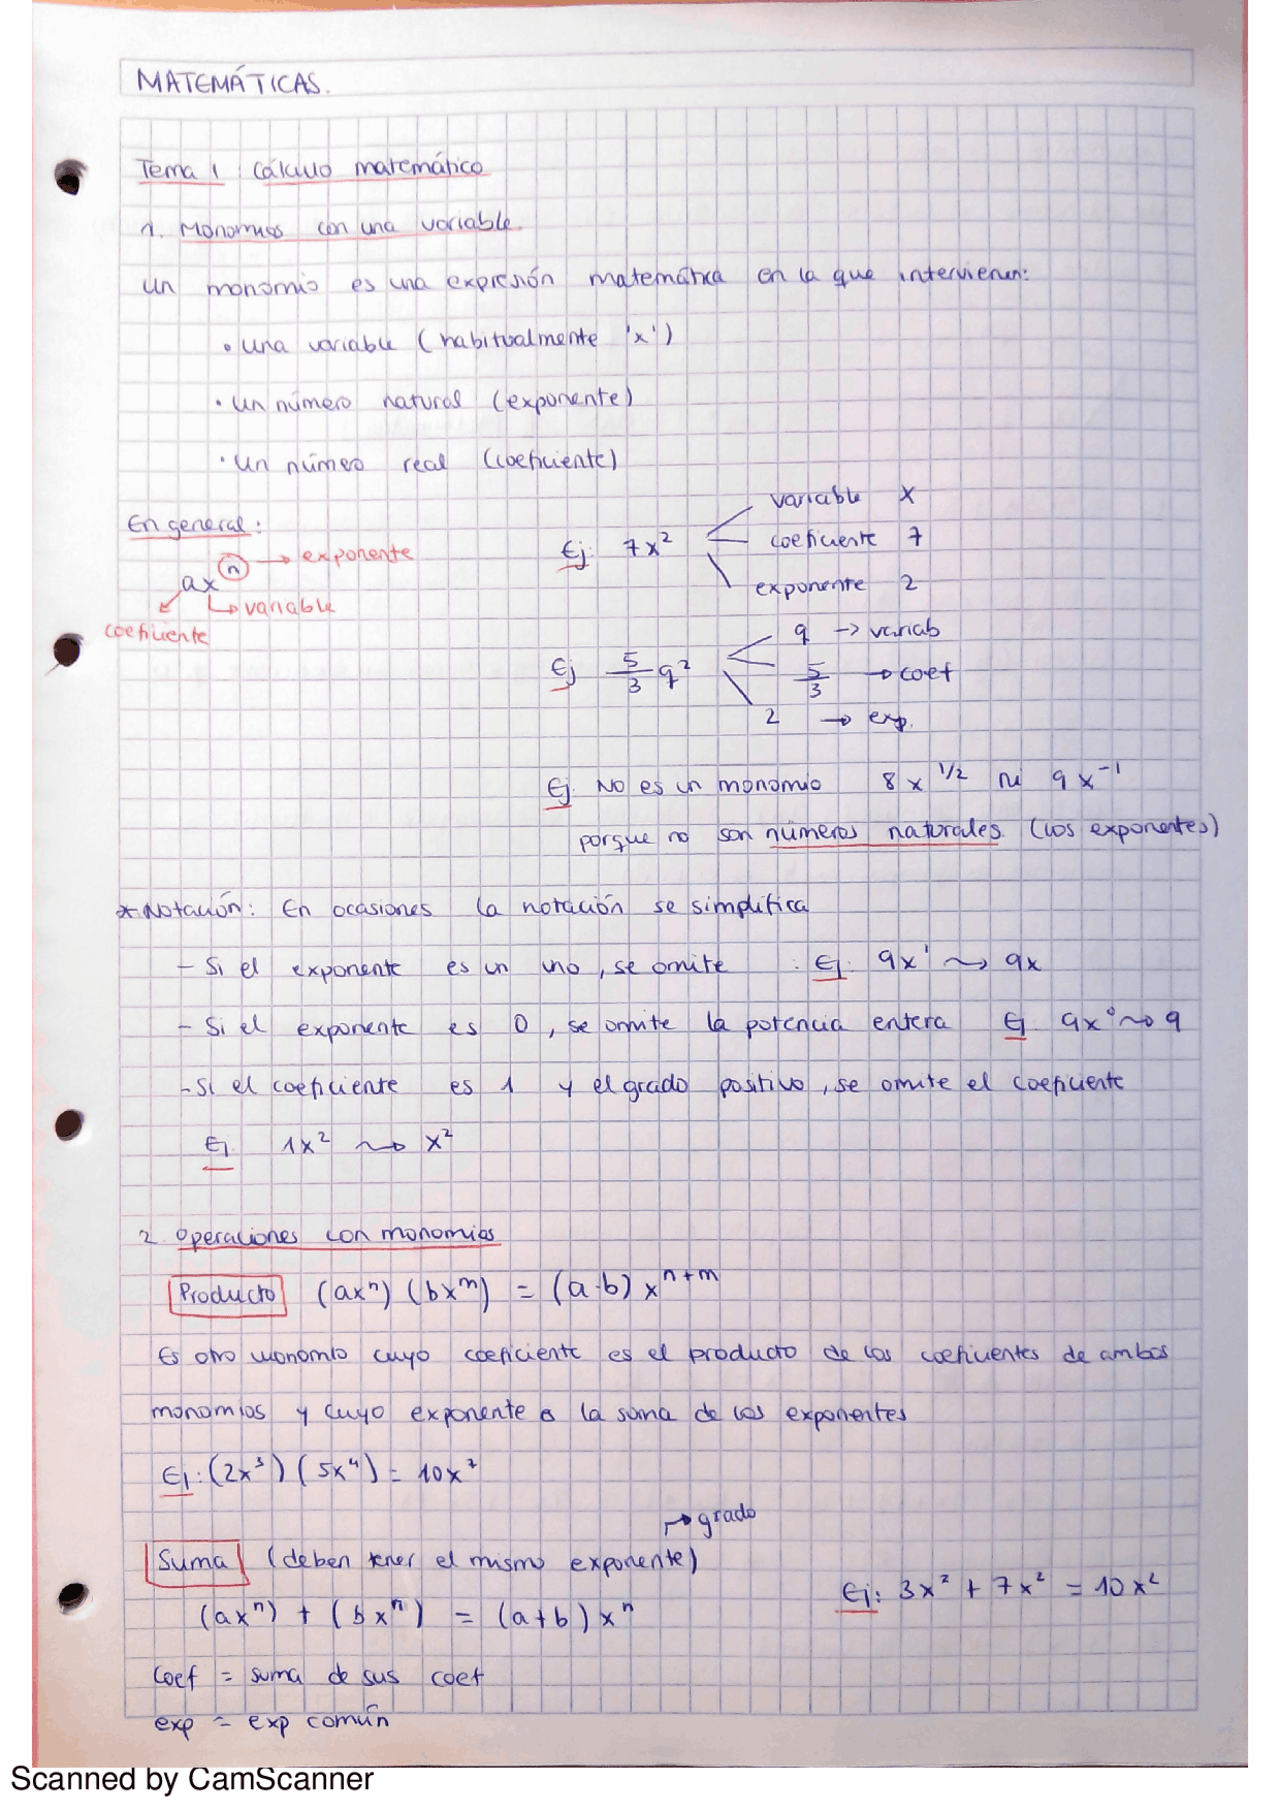 MATEMÁTICAS.
Tema 1 : Cálculo matemático
1. Monomios con una variable.
Un monomio es una expresión matemática en la que intervienen:
• Una variable (habitualmente 'x')
• Un número natural (exponente)
• Un número real (coeficiente)
En general:
ax^n
n → exponente
↳ variable
coeficiente
Ej: 7x²
variable x
coeficiente 7
exponente 2
Ej 5/3 q²
q → variab
5/3 → coef
2 → exp.
Ej. No es un monomio 8x^1/2 ni 9x^-1
porque no son números naturales. (los exponentes)
* Notación: En ocasiones la notación se simplifica
- Si el exponente es un uno, se omite : Ej. 9x¹ ⇝ 9x
- Si el exponente es 0, se omite la potencia entera Ej. 9x⁰ ⇝ 9
- Si el coeficiente es 1 y el grado positivo, se omite el coeficiente
Ej. 1x² ⇝ x²
2. Operaciones con monomios
Producto (ax^n) (bx^m) = (a·b) x^n+m
Es otro monomio cuyo coeficiente es el producto de los coeficientes de ambos
monomios y cuyo exponente es la suma de los exponentes
Ej: (2x³) (5x⁴) = 10x⁷
→ grado
Suma (deben tener el mismo exponente)
Ej: 3x² + 7x² = 10x²
(ax^n) + (bx^n) = (a+b) x^n
Coef = suma de sus coef
exp = exp común
Scanned by CamScanner